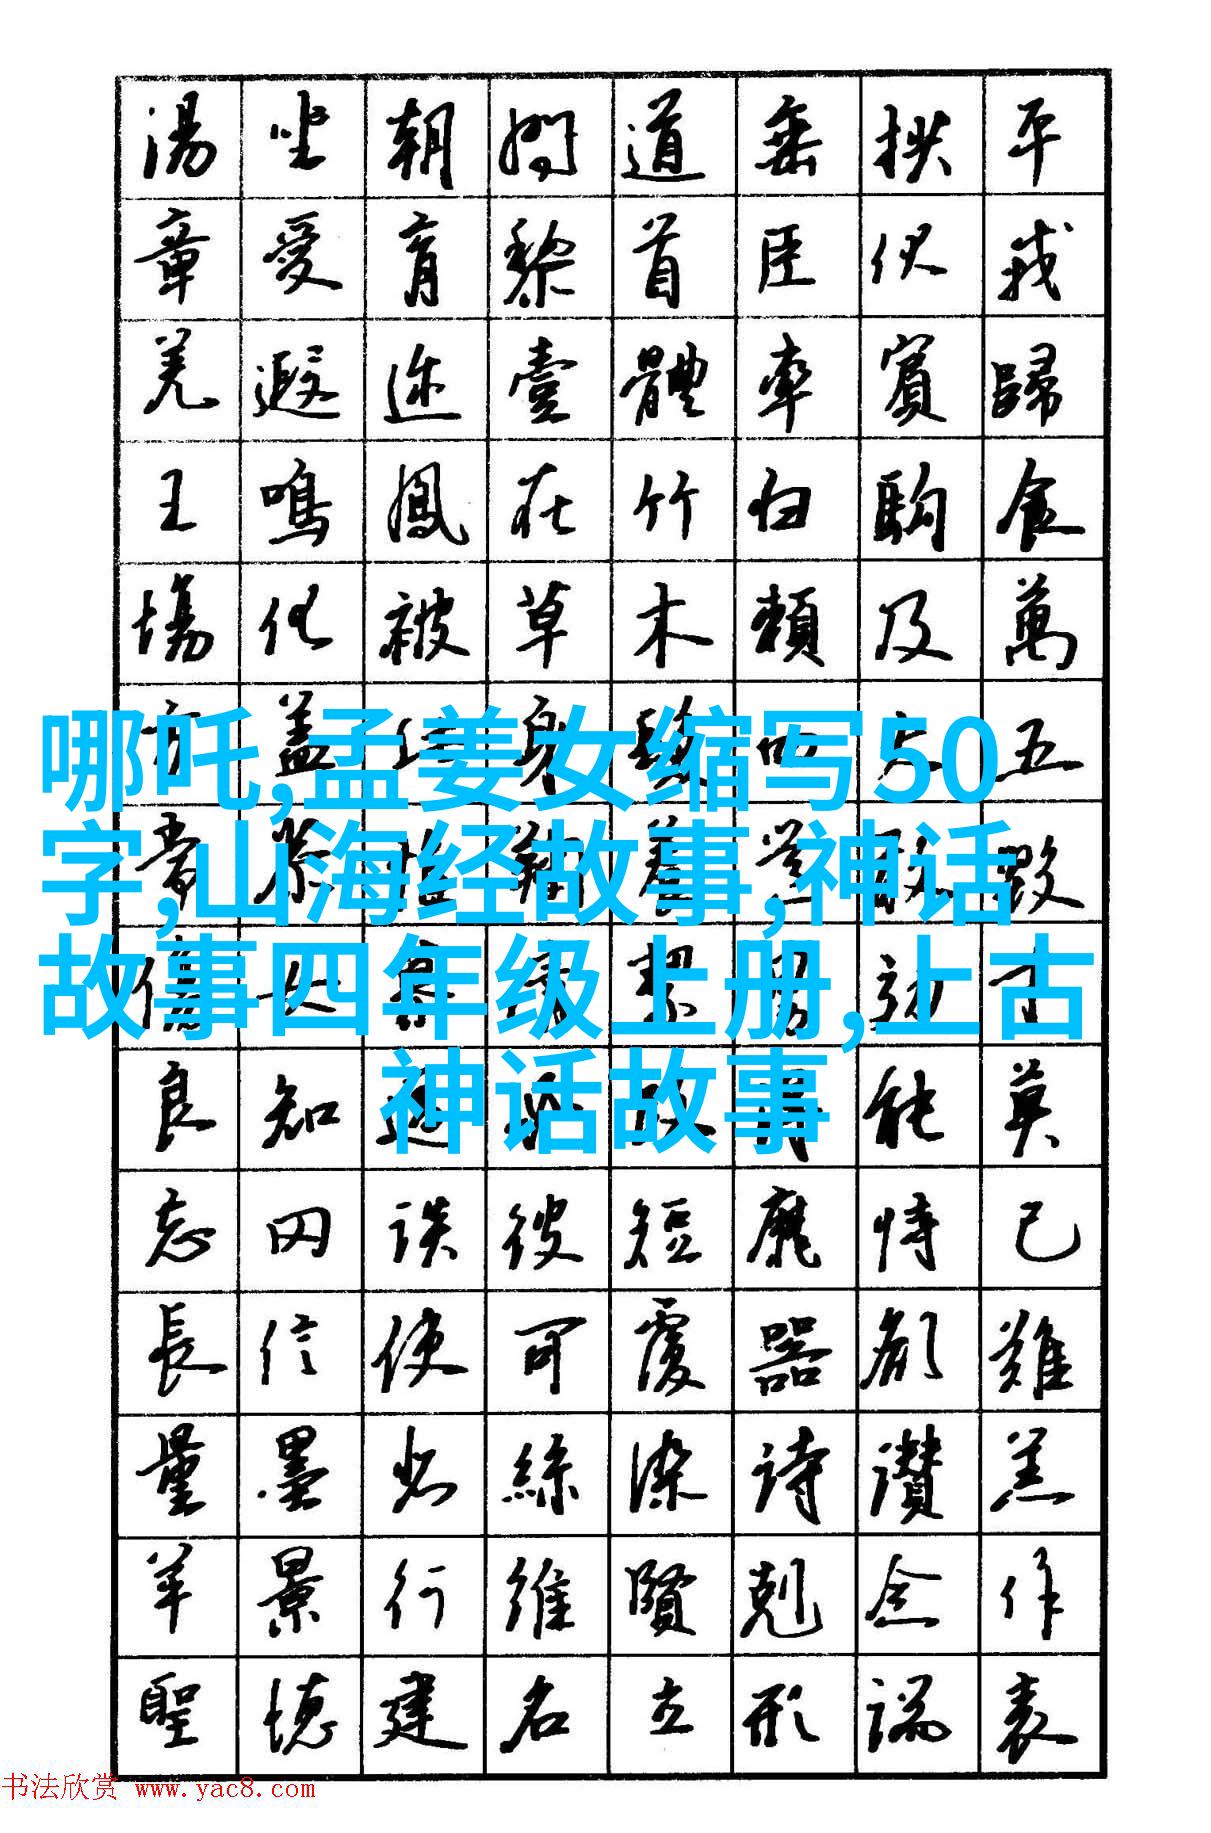 湯坐朝問道垂拱平
章愛育黎首臣伏戎
羌遐迩壹體率賓歸
王鳴鳳在竹白駒食
場化被草木賴及萬
方蓋此身髮四大五
常恭惟鞠養豈敢毀
傷女慕貞絜男效才
良知過必改得能莫
忘罔談彼短靡恃己
長信使可覆器欲難
量墨悲絲染詩讚羔
羊景行維賢剋念作
聖德建名立形端表
哪吒,孟姜女缩写50
字,山海经故事,神话
故事四年级上册,上古
神话故事
书法欣赏 www.yac8.com